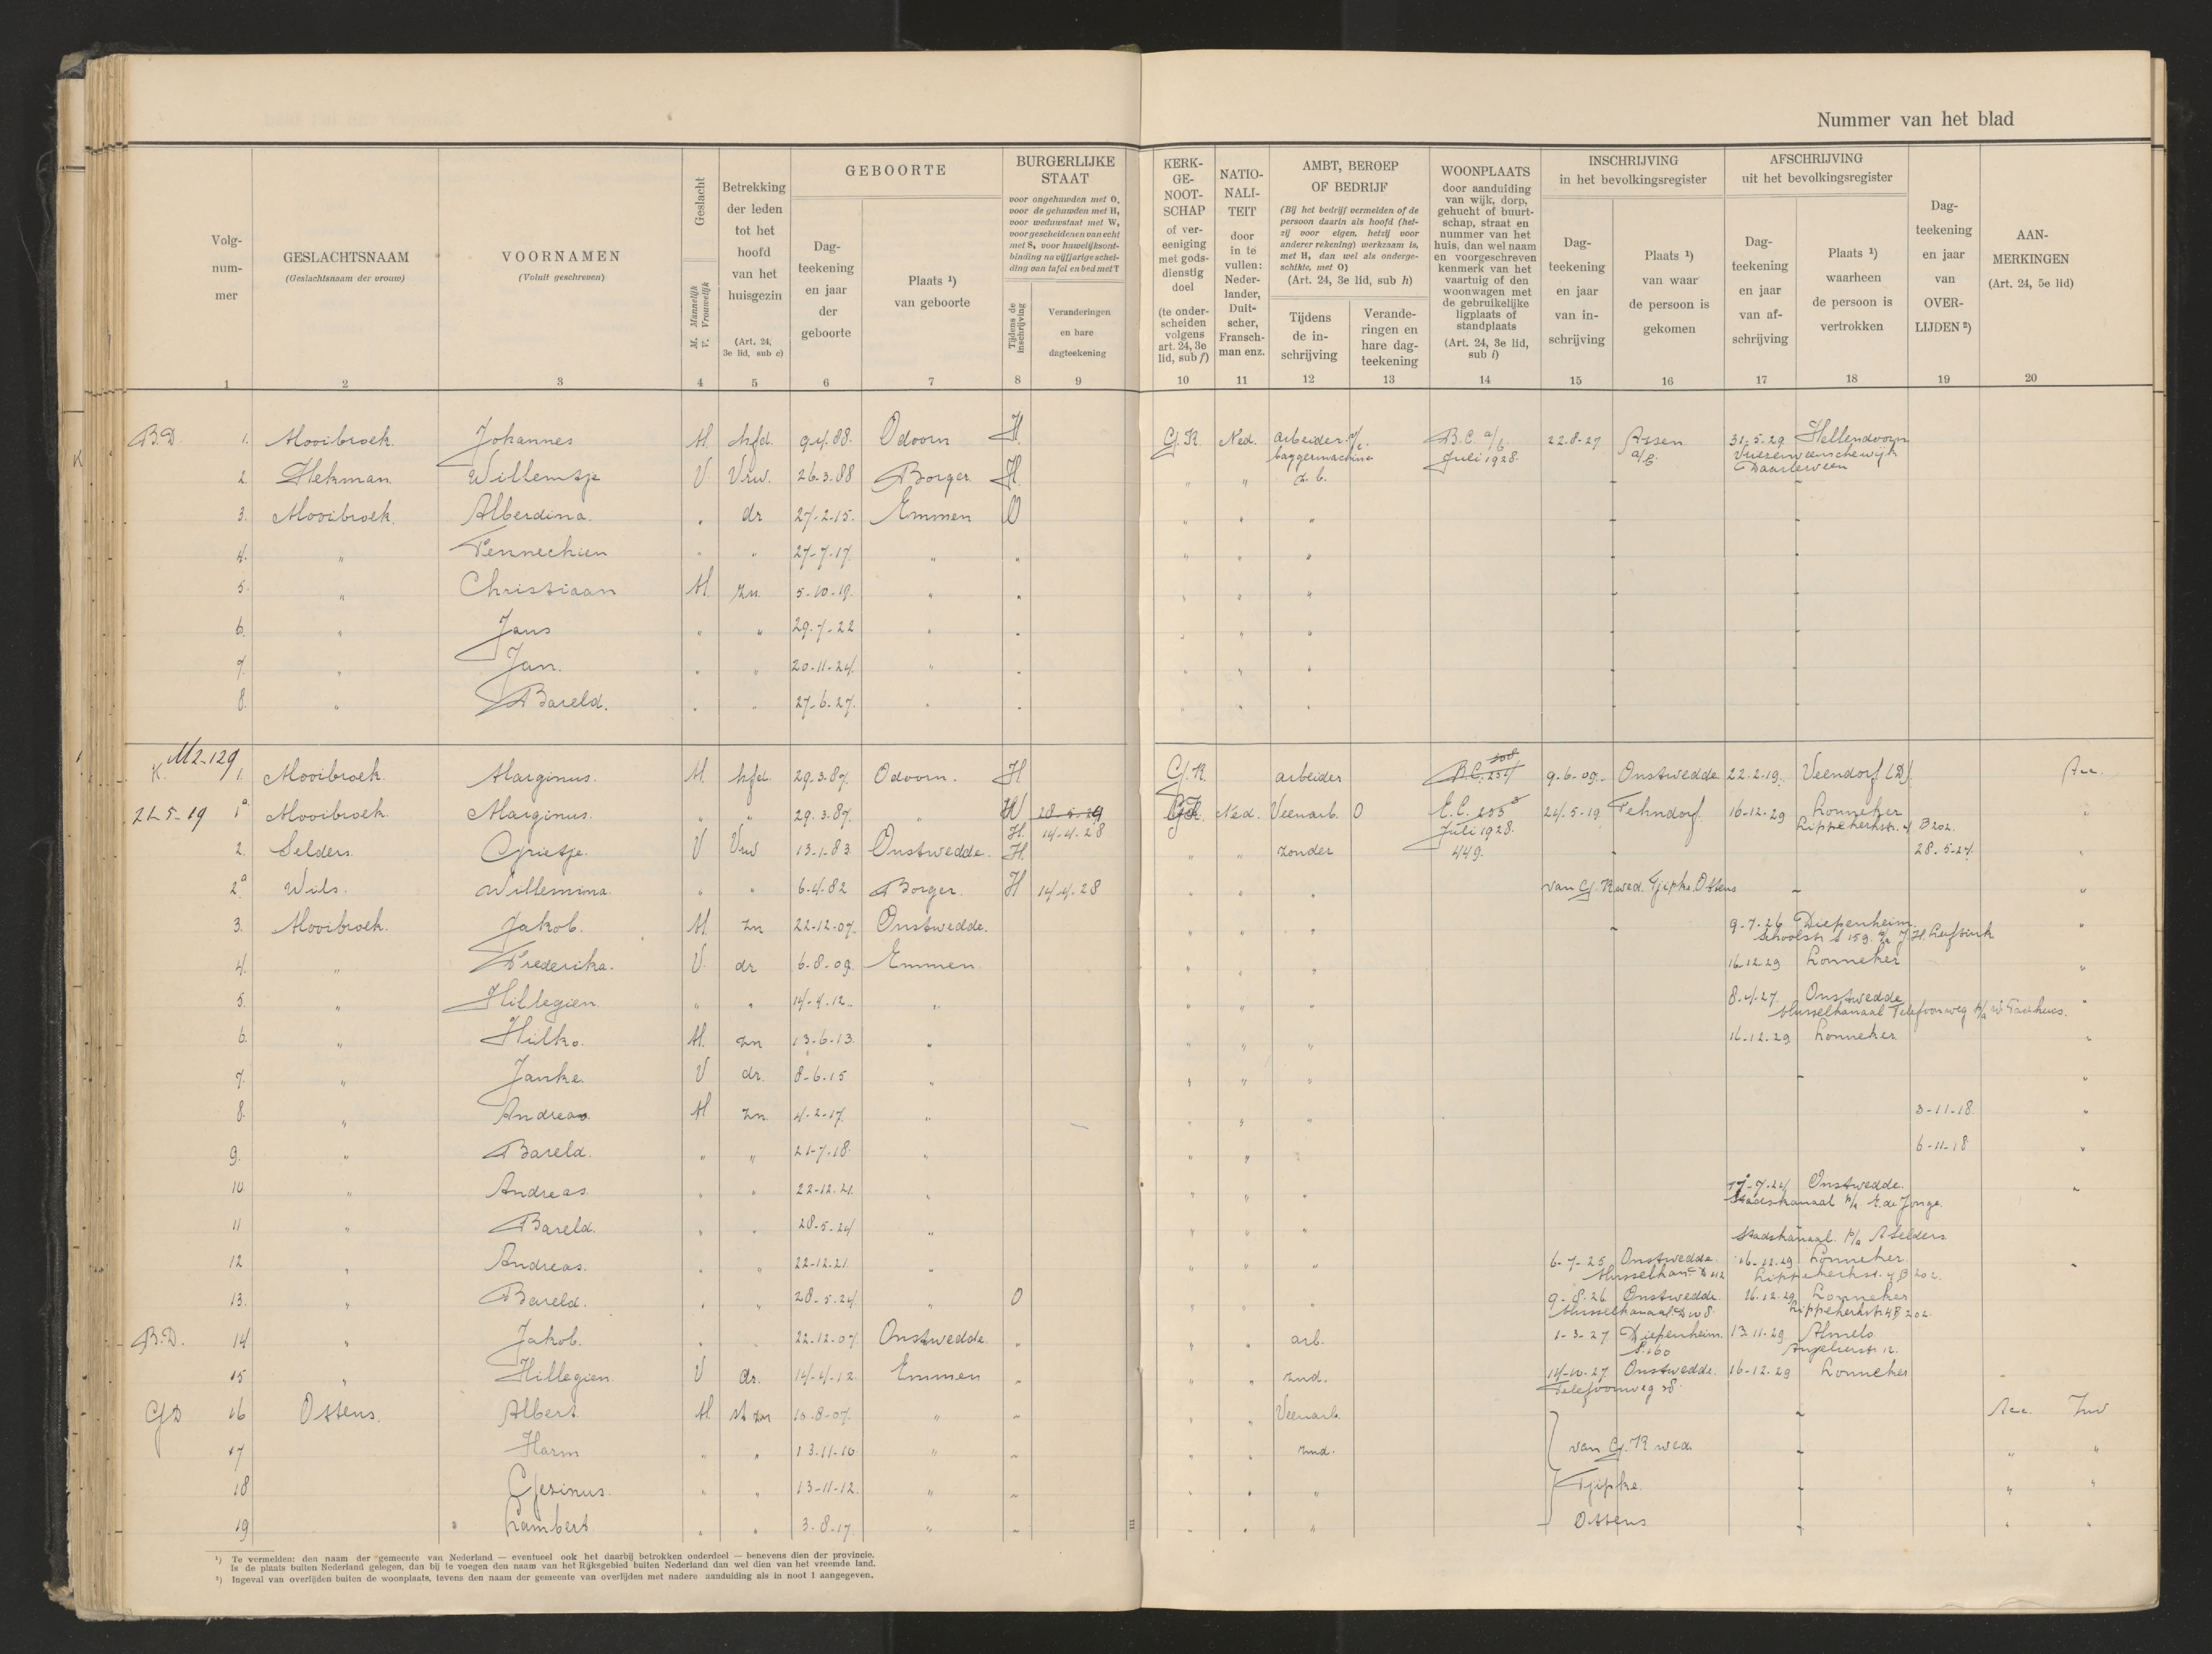 Nummer van het blad
Volgnummer
GESLACHTSNAAM
(Geslachtsnaam der vrouw)
VOORNAMEN
(Voluit geschreven)
Geslacht
M. Mannelijk
V. Vrouwelijk
Betrekking
der leden
tot het
hoofd
van het
huisgezin
(Art. 24,
3e lid, sub c)
GEBOORTE
Dag-
teekening
en jaar
der
geboorte
Plaats ¹)
van geboorte
BURGERLIJKE
STAAT
voor ongehuwden met O,
voor de gehuwden met H,
voor weduwstaat met W,
voor gescheidenen van echt
met S, voor huwelijksont-
binding na vijfjarige schei-
ding van tafel en bed met T
Tijdens de
inschrijving
Veranderingen
en hare
dagteekening
KERK-
GE-
NOOT-
SCHAP
of ver-
eeniging
met gods-
dienstig
doel
(te onder-
scheiden
volgens
art. 24, 3e
lid, sub f)
NATIO-
NALI-
TEIT
door
in te
vullen:
Neder-
lander,
Duit-
scher,
Fransch-
man enz.
AMBT, BEROEP
OF BEDRIJF
(Bij het bedrijf vermelden of de
persoon daarin als hoofd (het-
zij voor eigen, hetzij voor
anderer rekening) werkzaam is,
met H, dan wel als onderge-
schikte, met O)
(Art. 24, 3e lid, sub h)
Tijdens
de in-
schrijving
Verande-
ringen en
hare dag-
teekening
WOONPLAATS
door aanduiding
van wijk, dorp,
gehucht of buurt-
schap, straat en
nummer van het
huis, dan wel naam
en voorgeschreven
kenmerk van het
vaartuig of den
woonwagen met
de gebruikelijke
ligplaats of
standplaats
(Art. 24, 3e lid,
sub i)
INSCHRIJVING
in het bevolkingsregister
Dag-
teekening
en jaar
van in-
schrijving
Plaats ¹)
van waar
de persoon is
gekomen
AFSCHRIJVING
uit het bevolkingsregister
Dag-
teekening
en jaar
van af-
schrijving
Plaats ¹)
waarheen
de persoon is
vertrokken
Dag-
teekening
en jaar
van
OVER-
LIJDEN ²)
AAN-
MERKINGEN
(Art. 24, 5e lid)
1 2 3 4 5 6 7 8 9 10 11 12 13 14 15 16 17 18 19 20
B.D. 1. Mooibroek. Johannes M. hfd. 9.4.88. Odoorn H. G.K. Ned. arbeider 22.8.27 Assen 31.5.29 Hellendoorn
baggermachine Juli 1928. Vriezenveenschewijk
Daarlerveen
2. Hekman. Willemtje V. Vrw. 26.3.88 Borger H. " " z.b.
3. Mooibroek. Alberdina. " dr 27-2-15. Emmen O " " "
4. " Fennechien " " 27-7-17. " " " " "
5. " Christiaan M. zn. 5-10-19. " " " " "
6. " Jans " " 29-7-22 " " " " "
7. " Jan. " " 20-11-24. " " " " "
8. " Bareld. " " 27-6-27. " " " " "
M2-129
K. 1. Mooibroek. Marginus. M. hfd. 29.3.87. Odoorn. H G.K. arbeider 9-6-09. Onstwedde 22.2.19. Veendorf (D). Acc.
21-5-19 1a Mooibroek. Marginus. " " 29.3.87. " W 28-5-24 G.K. Ned. Veenarb. O E.C. 205 24.5-19 Fehndorf. 16-12-29 Lonneker
H. 14-4-28 Juli 1928. Lippekerkstr. 4 B202.
2. Selders. Grietje. V Vrw 13-1-83. Onstwedde. H. " " zonder 449. 28.5-24.
2a Wils. Willemina. " " 6-4.82 Borger. H 14-4-28 " " " van G.K. wed. Tjipke Ottens
3. Mooibroek. Jakob. M. zn 22-12-07. Onstwedde. " " " 9-7-26 Diepenheim
Schoolstr.
4. " Frederika. V. dr 6-8-09. Emmen " " " 16.12.29 Lonneker
5. " Hillegien " " 14-4-12. " " " " 8.4.27. Onstwedde
Musselkanaal Telefoonweg
6. " Hilko. M. zn 13-6-13. " " " " 16-12.29 Lonneker
7. " Janke. V dr. 8-6-15 " " " "
8. " Andreas. M zn. 4-2-17. " " " " 3-11-18.
9. " Bareld. " " 21-7-18. " " " " 6-11-18
10. " Andreas. " " 22-12.21. " " " " Onstwedde.
Stadskanaal p/a E. de Jonge.
11 " Bareld. " " 28-5-24 " " " "
Stadskanaal. p/a A Selders
12 " Andreas. " " 22-12.21. " " " " 6-7-25 Onstwedde. 16-12.29 Lonneker
Lippekerkstr. 4 B202.
13. " Bareld. " " 28-5.24. " O " " " 9-8.26 Onstwedde. 16.12.29 Lonneker
Musselkanaal Lippekerkstr 4B202.
B.D. 14 " Jakob. " " 22-12-07. Onstwedde. " " " arb. 1-3-27 Diepenheim. 13.11-29 Almelo.
S.160 Angelierstr 12.
15 " Hillegien. V dr. 14-4-12. Emmen " " " znd. 14-10-27 Onstwedde. 16-12.29 Lonneker
Telefoonweg
GD 16 Ottens. Albert M. st zn 10-8-07. " " " " Veenarb. Acc.
17 Harm " " 13-11-10. " " " " znd. van G.K wed.
18 Gerinus. " " 13-11-12. " " " " " Tjipke.
19 " Lambert. " " 3-8-17. " " " " " Ottens
¹) Te vermelden: den naam der gemeente van Nederland — eventueel ook het daarbij betrokken onderdeel — benevens dien der provincie.
Is de plaats buiten Nederland gelegen, dan bij te voegen den naam van het Rijksgebied buiten Nederland dan wel dien van het vreemde land.
²) Ingeval van overlijden buiten de woonplaats, tevens den naam der gemeente van overlijden met nadere aanduiding als in noot 1 aangegeven.